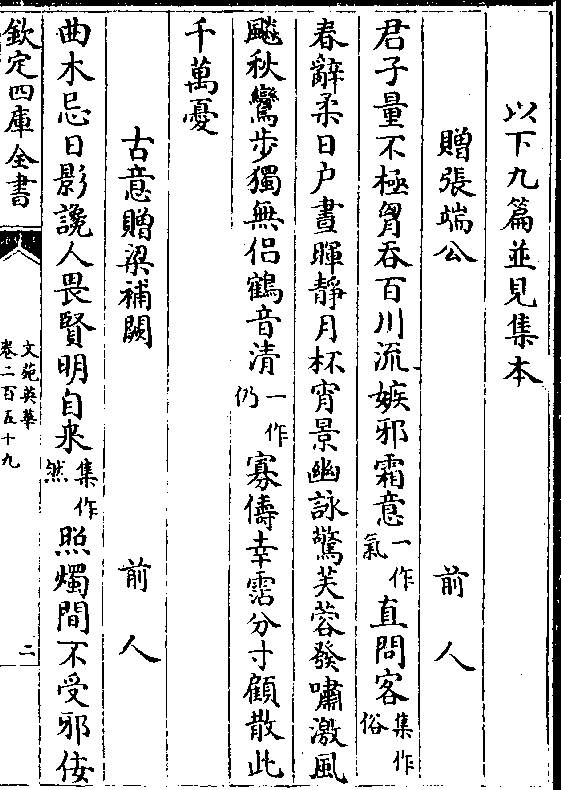 以下九篇並見集本
贈張端公　前人
君子量不極胷吞百川流嫉邪霜意一作氣直問客集作俗
春辭柔日户晝暉靜月杯宵景幽詠驚芙蓉發嘯激風
飈秋鸞步獨無侣鶴音清一作仍寡儔幸霑分寸顧散此
千萬憂
古意贈梁補闕　前人
曲木忌日影讒人畏賢明自来集作然照燭間不受邪佞
欽定四庫全書
文苑英華
卷二百五十九
二